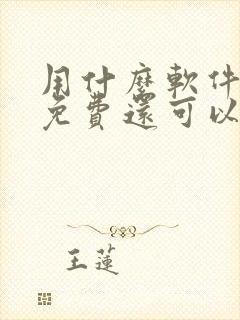 用什麼軟件
免費還可以
王蓮